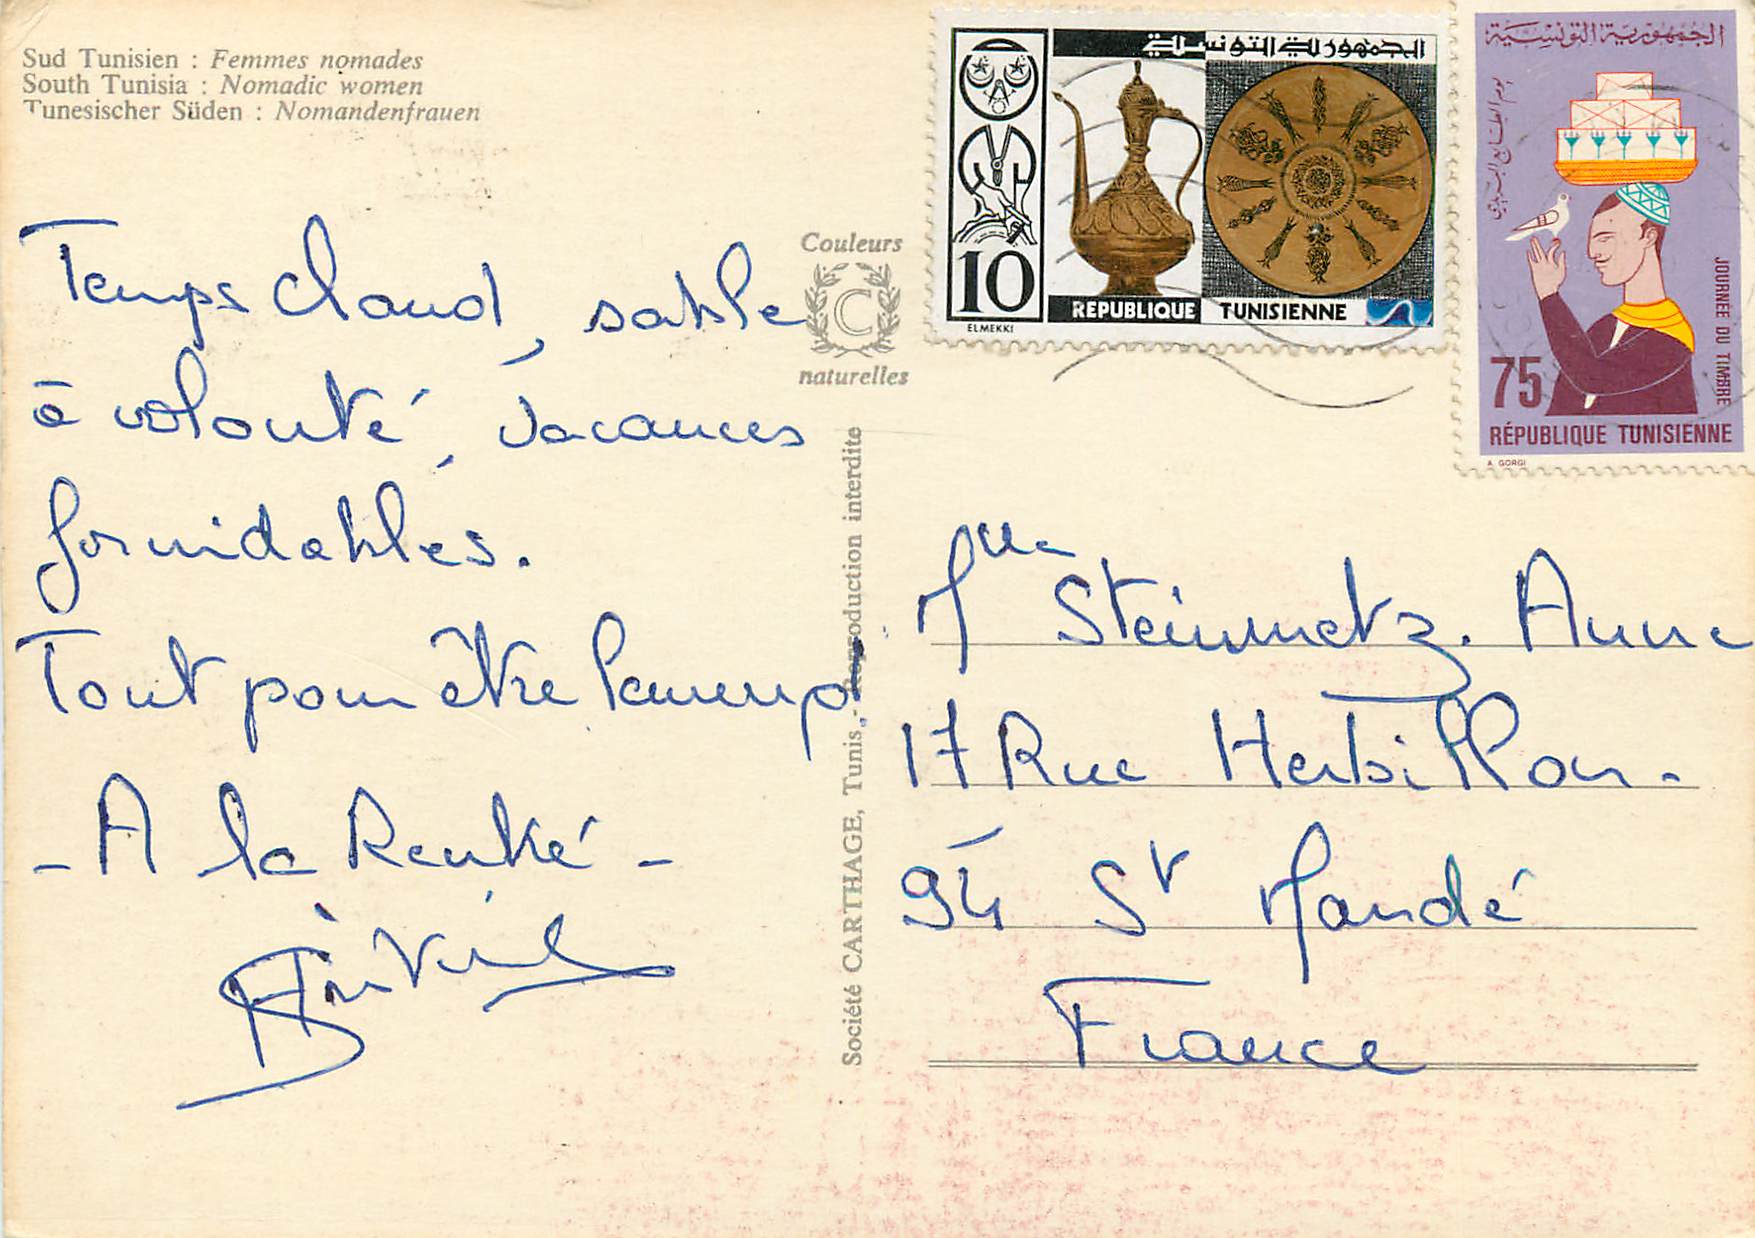 Sud Tunisien : Femmes nomades
South Tunisia : Nomadic women
Tunesischer Süden : Nomandenfrauen
Temps chaud, sable
à volonté, vacances
formidables.
Tout pour être
- A la Rentré -
Couleurs
C
naturelles
Société CARTHAGE, Tunis - Reproduction interdite
الجمهورية التونسية
10
ELMEKKI
REPUBLIQUE TUNISIENNE
الجمهورية التونسية
يوم الطابع البريدي
JOURNÉE DU TIMBRE
75
RÉPUBLIQUE TUNISIENNE
A. GORGI
Mlle Steinmetz. Anne
17 Rue Herbillon.
94 St Mandé
France